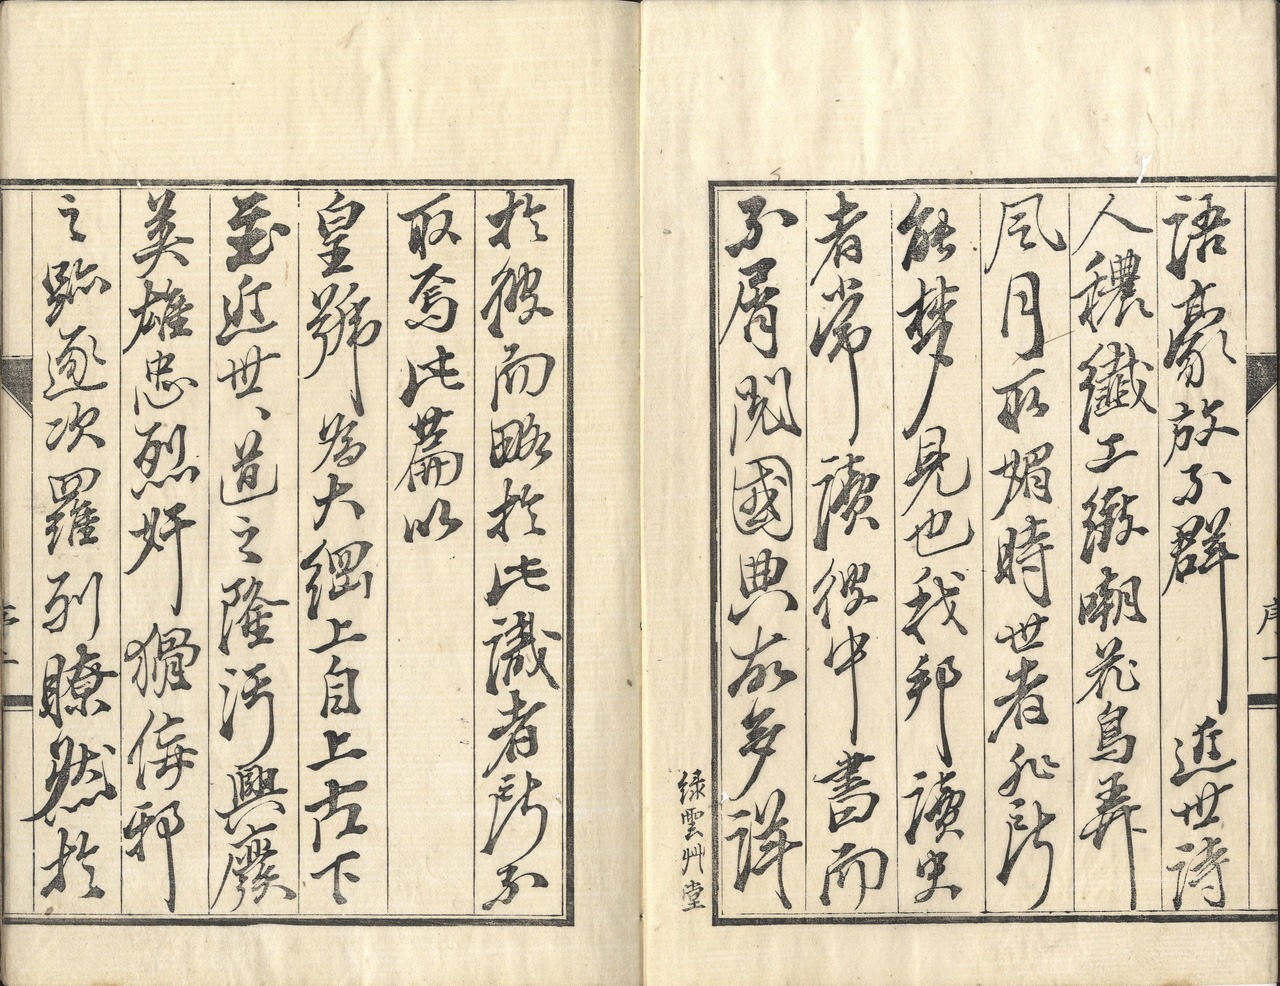 語豪放不群近世詩
人穠纖工緻嘲花鳥弄
風月取媚時世者非所
能夢見也我邦讀史
者常讀彼中書而
不屑閱國典故多詳
綠雲艸堂
於彼而略於此識者所不
取焉此篇以
皇號為大綱上自上古下
至近世、道之隆污興廢
英雄忠烈奸猾倂邪
之跡逐次羅列瞭然於
序一